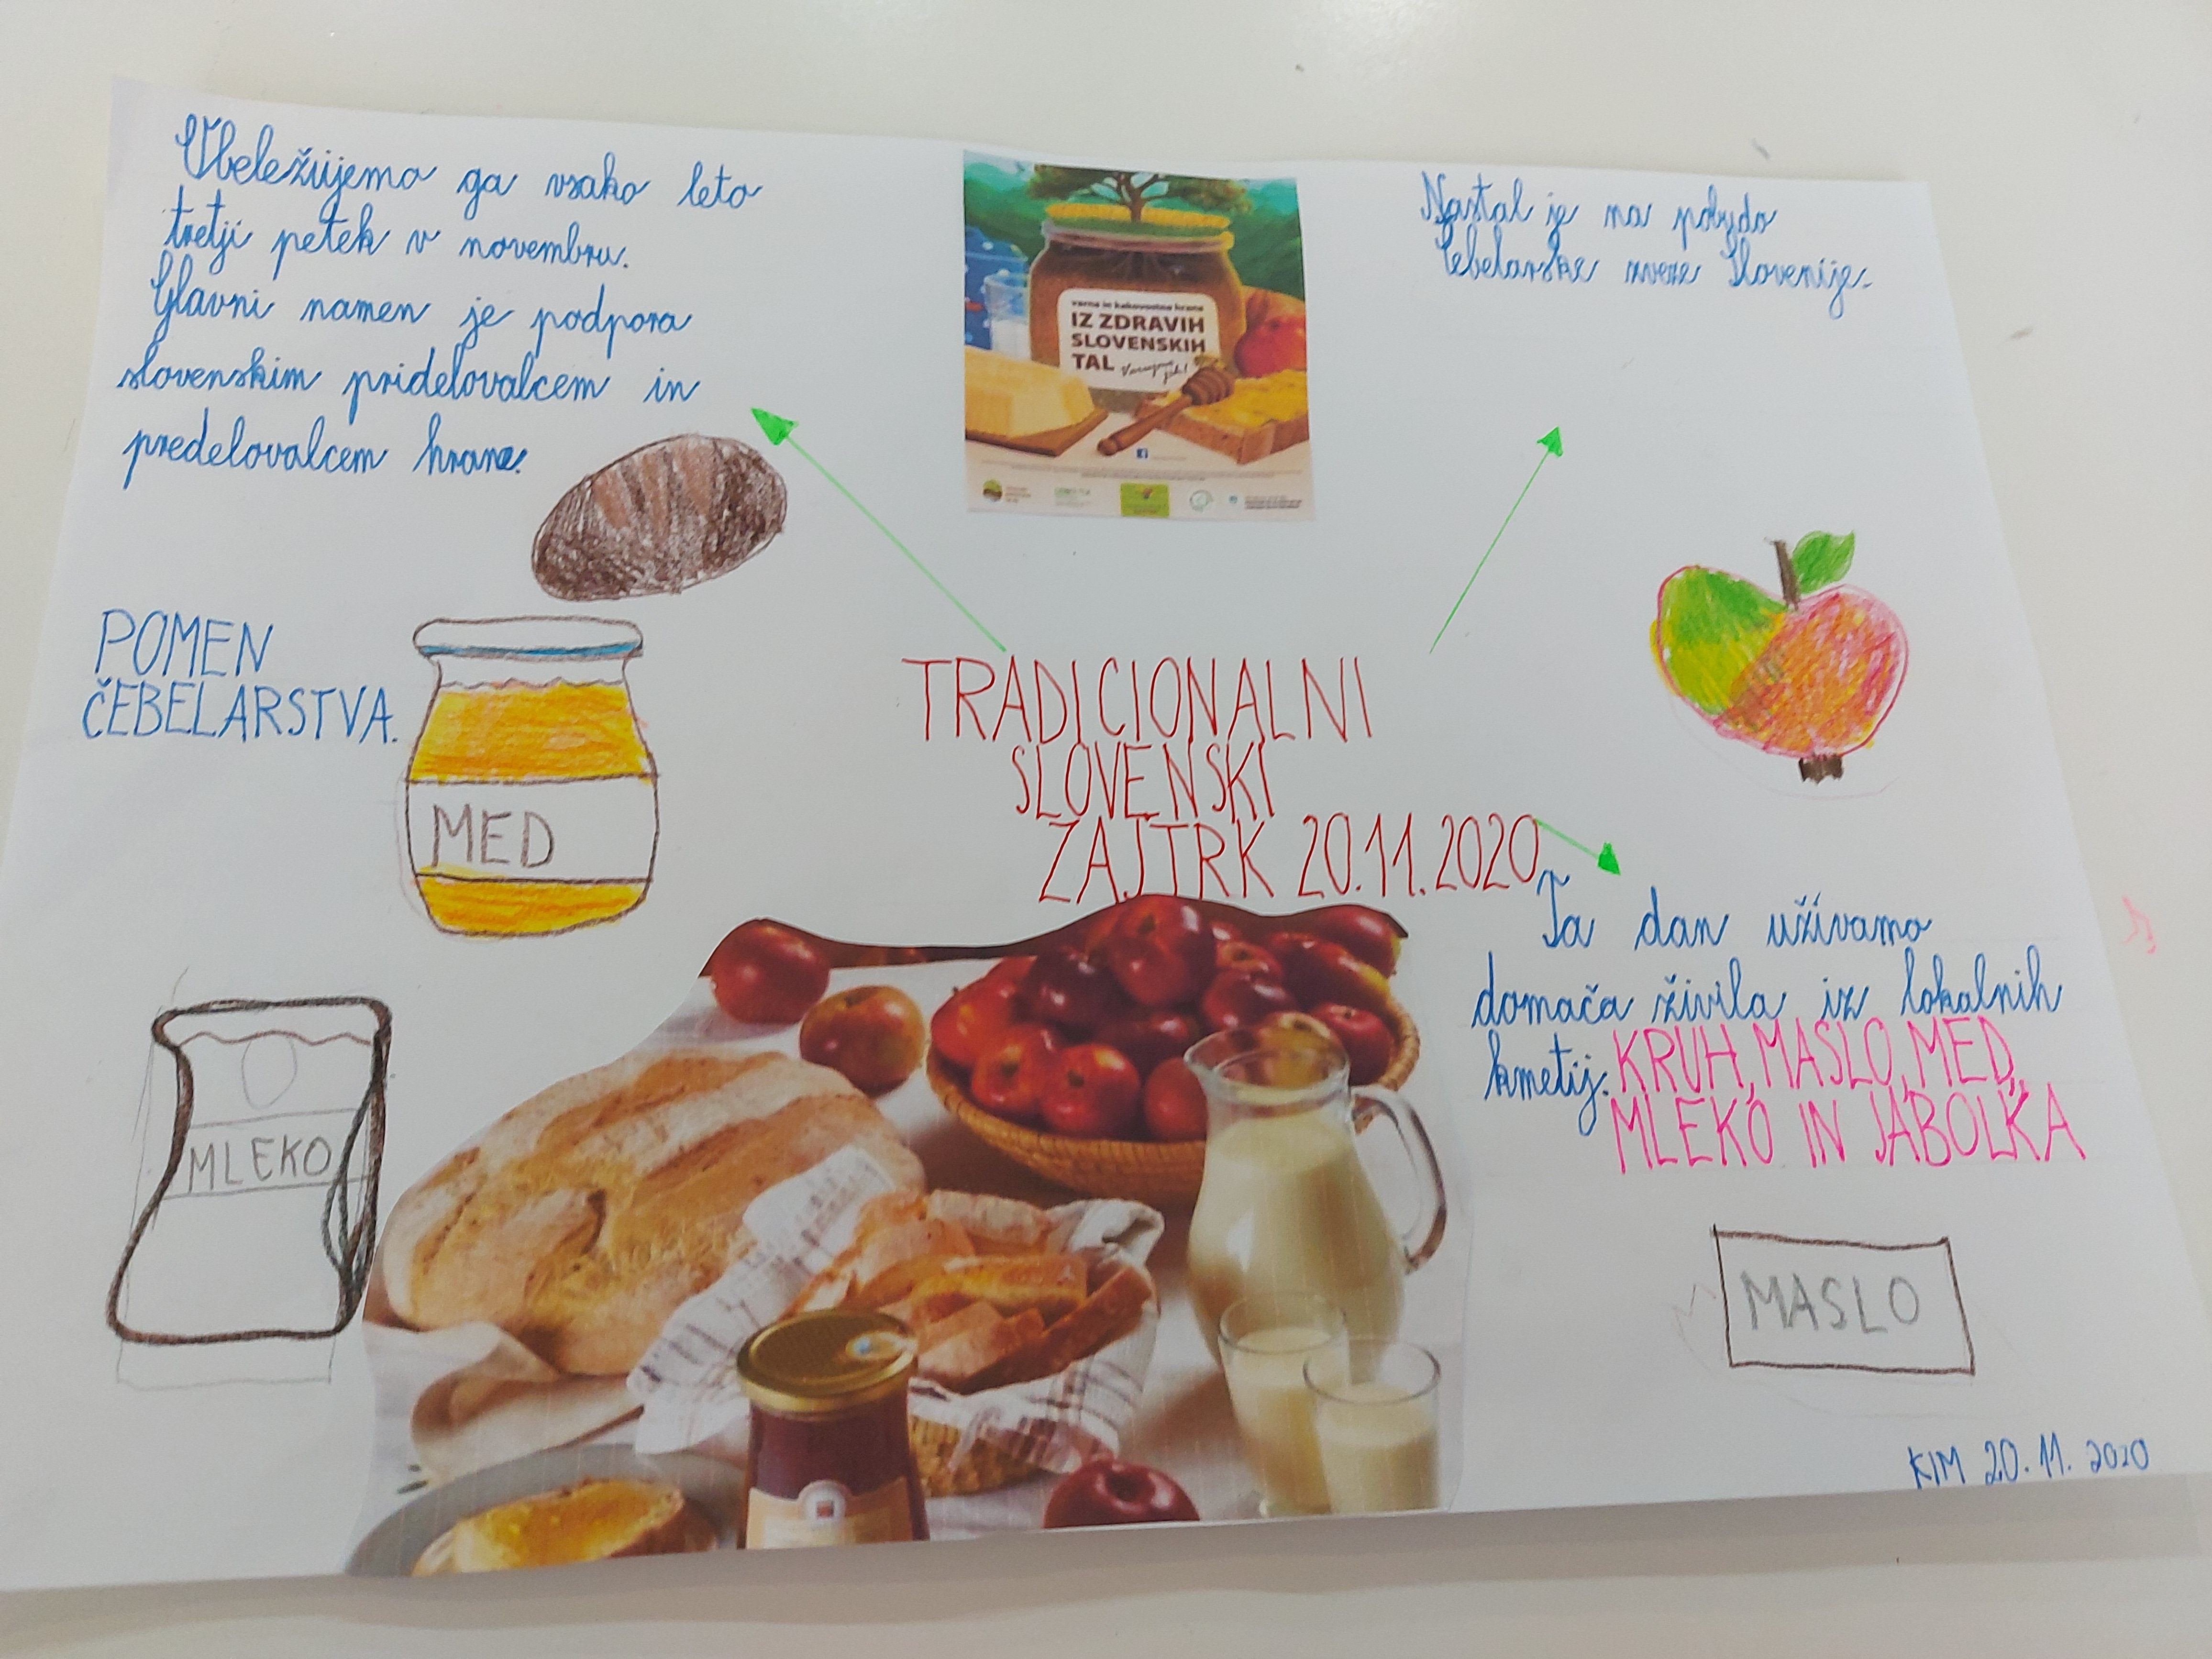 Obeležujemo ga vsako leto
tretji petek v novembru.
Glavni namen je podpora
slovenskim pridelovalcem in
predelovalcem hrane.
varna in kakovostna hrana
IZ ZDRAVIH
SLOVENSKIH
TAL
Nastal je na pobudo
Čebelarske zveze Slovenije.
POMEN
ČEBELARSTVA.
MED
TRADICIONALNI
SLOVENSKI
ZAJTRK 20.11.2020
Ta dan uživamo
domača živila iz lokalnih
kmetij. KRUH, MASLO, MED,
MLEKO IN JABOLKA
MLEKO
MASLO
KIM 20.11.2020